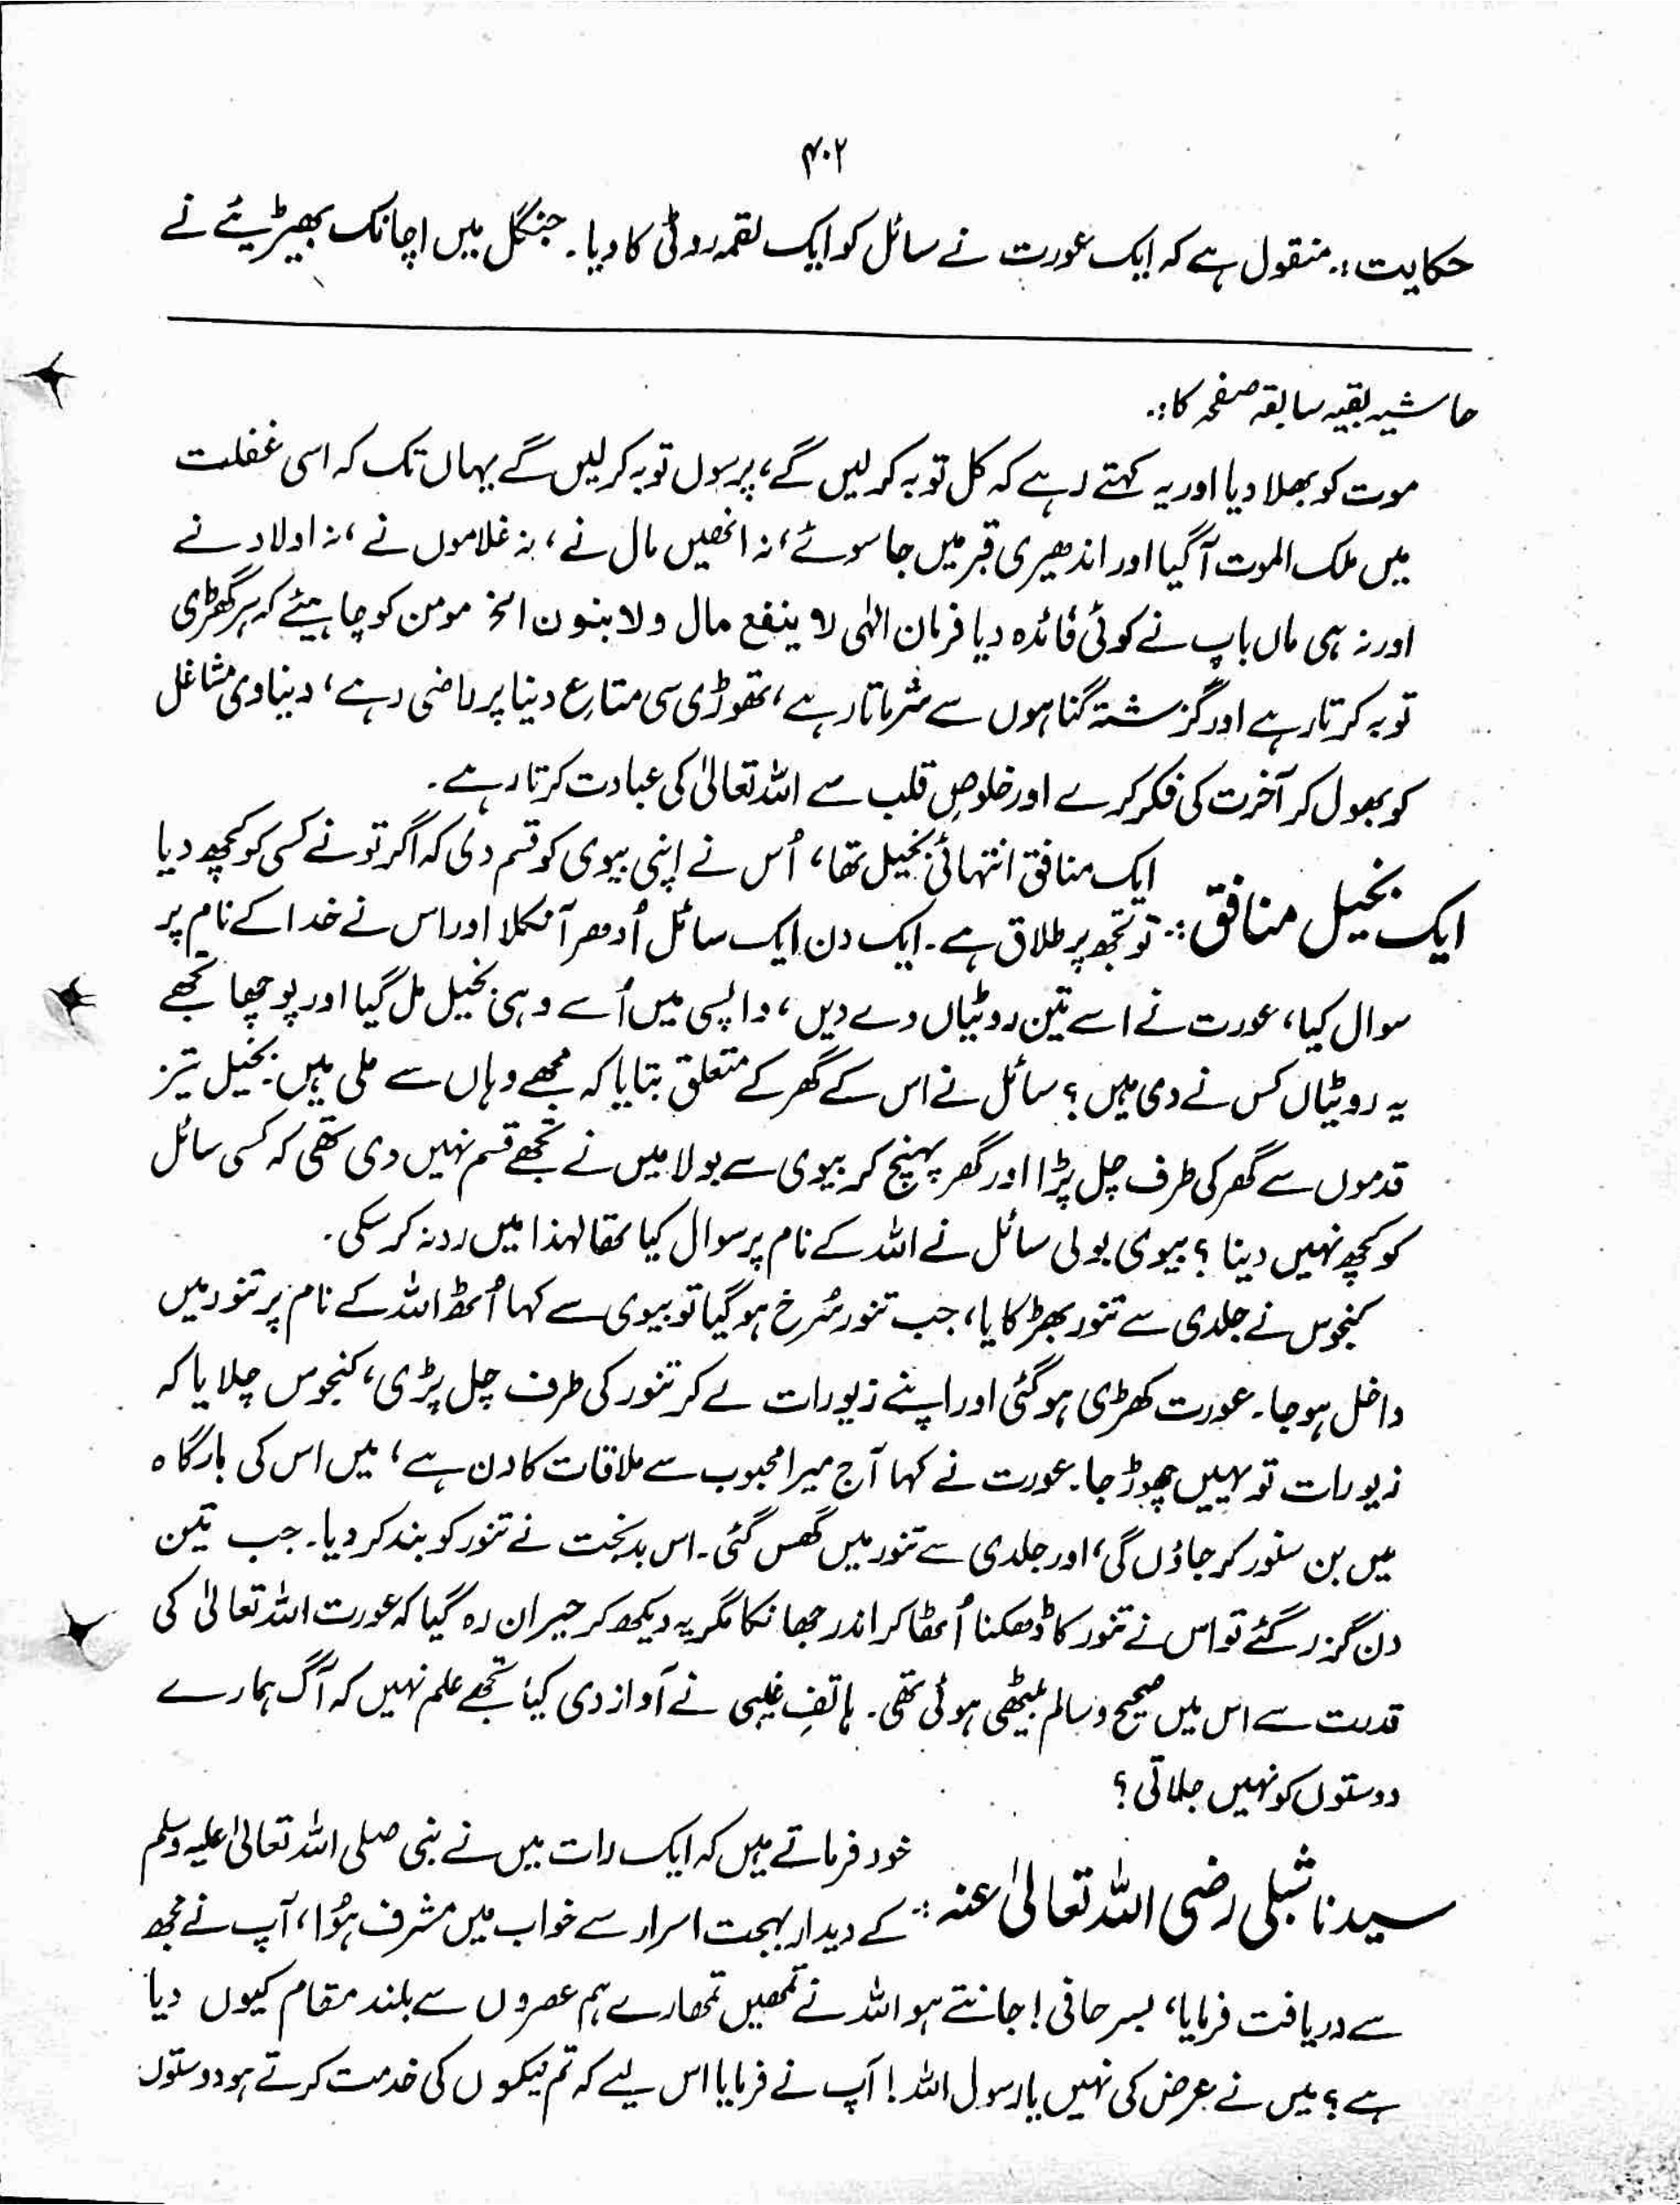 ۴۰۲
حکایت :. منقول ہے کہ ایک عورت نے سائل کو ایک لقمہ روٹی کا دیا ۔ جنگل میں اچانک بھیڑیئے نے
حاشیہ بقیہ سابقہ صفحہ کا :.
موت کو بھلا دیا اور یہ کہتے رہے کہ کل توبہ کر لیں گے، پرسوں توبہ کر لیں گے یہاں تک کہ اسی غفلت
میں ملک الموت آگیا اور اندھیری قبر میں جا سوئے، نہ انھیں مال نے، نہ غلاموں نے، نہ اولاد نے
اور نہ ہی ماں باپ نے کوئی فائدہ دیا فرمان الٰہی لا ینفع مال ولا بنون الخ مومن کو چاہیئے کہ ہر گھڑی
توبہ کرتا رہے اور گزشتہ گناہوں سے شرماتا رہے، تھوڑی سی متاعِ دنیا پر راضی رہے، دنیاوی مشاغل
کو بھول کر آخرت کی فکر کرے اور خلوصِ قلب سے اللہ تعالیٰ کی عبادت کرتا رہے ۔
ایک بخیل منافق :. ایک منافق انتہائی بخیل تھا، اُس نے اپنی بیوی کو قسم دی کہ اگر تو نے کسی کو کچھ دیا
تو تجھ پر طلاق ہے ۔ ایک دن ایک سائل اُدھر آنکلا اور اس نے خدا کے نام پر
سوال کیا، عورت نے اسے تین روٹیاں دے دیں، واپسی میں اُسے وہی بخیل مل گیا اور پوچھا تجھے
یہ روٹیاں کس نے دی ہیں؟ سائل نے اس کے گھر کے متعلق بتایا کہ مجھے وہاں سے ملی ہیں۔ بخیل تیز
قدموں سے گھر کی طرف چل پڑا اور گھر پہنچ کر بیوی سے بولا میں نے تجھے قسم نہیں دی تھی کہ کسی سائل
کو کچھ نہیں دینا ؟ بیوی بولی سائل نے اللہ کے نام پر سوال کیا تھا لہذا میں رد نہ کر سکی ۔
کنجوس نے جلدی سے تنور بھڑکایا، جب تنور سُرخ ہو گیا تو بیوی سے کہا اُٹھ اللہ کے نام پر تنور میں
داخل ہو جا ۔ عورت کھڑی ہو گئی اور اپنے زیورات لے کر تنور کی طرف چل پڑی، کنجوس چلایا کہ
زیورات تو یہیں چھوڑ جا ۔ عورت نے کہا آج میرا محبوب سے ملاقات کا دن ہے، میں اس کی بارگاہ
میں بن سنور کر جاؤں گی، اور جلدی سے تنور میں گھس گئی ۔ اس بدبخت نے تنور کو بند کر دیا ۔ جب تین
دن گزر گئے تو اس نے تنور کا ڈھکنا اُٹھا کر اندر جھانکا مگر یہ دیکھ کر حیران رہ گیا کہ عورت اللہ تعالیٰ کی
قدرت سے اس میں صحیح و سالم بیٹھی ہوئی تھی ۔ ہاتفِ غیبی نے آواز دی کیا تجھے علم نہیں کہ آگ ہمارے
دوستوں کو نہیں جلاتی ؟
سیدنا شبلی رضی اللہ تعالیٰ عنہ :. خود فرماتے ہیں کہ ایک رات میں نے نبی صلی اللہ تعالیٰ علیہ وسلم
کے دیدار بہجت اسرار سے خواب میں مشرف ہُوا، آپ نے مجھ
سے دریافت فرمایا، بسر حافی ! جانتے ہو اللہ نے تمھیں تمھارے ہم عصروں سے بلند مقام کیوں دیا
ہے ؟ میں نے عرض کی نہیں یا رسول اللہ ! آپ نے فرمایا اس لیے کہ تم نیکوں کی خدمت کرتے ہو دوستوں